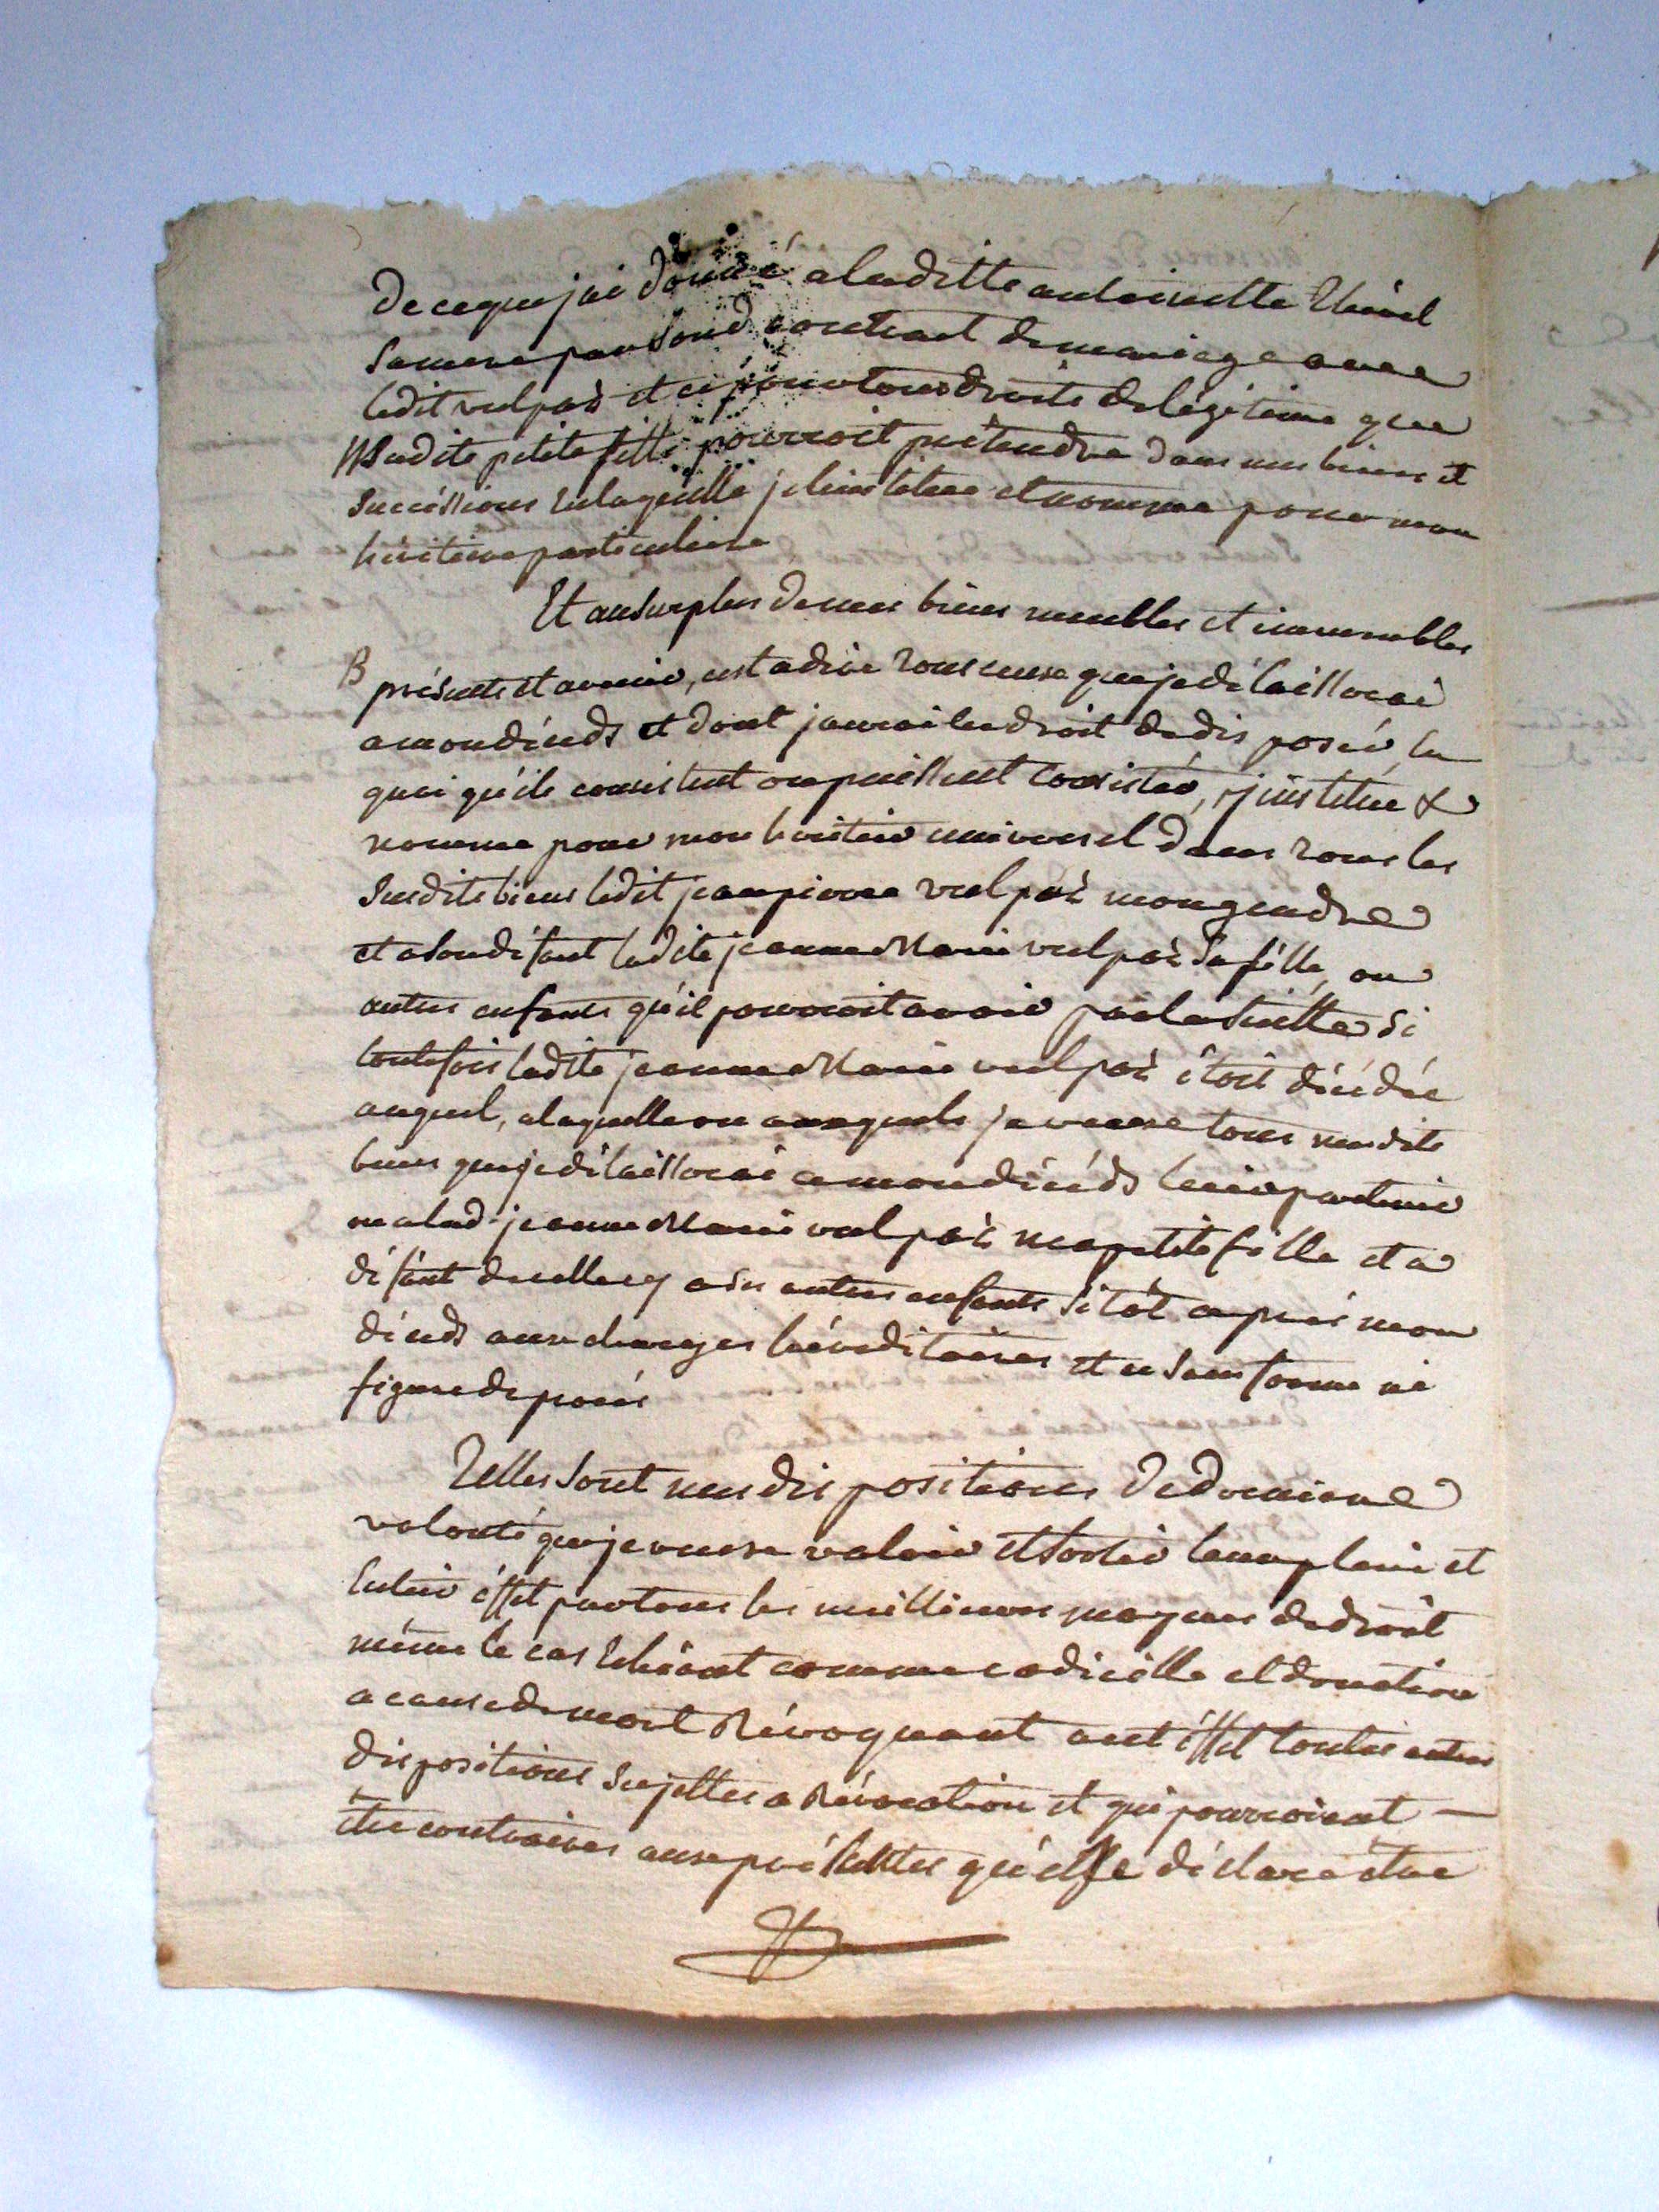 De ceque jai donné a laditte antoinette
Sa mere par Sond contract de mariage avec
ledit vulpas et ce pour tous droits de légitime que
Madite petite fille pourroit prétendre dans mes biens et
Succéssions en laquelle je linstitue et nomme pour mon
héritiere particuliere
Et au Surplus de mes biens meubles et immeubles
B présents et avenir, cest adire tous ceux que je délaisserai
a mon décéds et dont jaurai le droit de disposér, en
quoi qu'ils consistent ou puissent consister, j'institue &
nomme pour mon héritier universel dans tous les
Susdits biens ledit jean pierre vulpas mon gendre
et a Son défaut ladite jeanne Marie vulpas Sa fille, ou
autres enfants qu'il pourroit avoir par la Suitte Si
toutefois ladite jeanne Marie vulpas étoit décédée
auquel, a laquelle ou auxquels je veux tous mesdits
biens que je délaisserai a mon décéds
a lad. jeanne Marie vulpas ma petite fille et a
défaut de celle cy a Ses autres enfants Sitôt après mon
décéds aux charges héréditaires et ce Sans forme ni
figure de procés
Telles Sont mes dispositions de derniere
volonté que je veux valoir et Sortir leur plein et
Entier éffet par tous les meilleurs moyens de droit
même le cas Echéant comme codicille et donation
a cause de mort Révoquant a cet éffet toutes autres
dispositions Sujettes a Révocation et qui pourroient —
être contraires aux présentes qu'elle déclare être